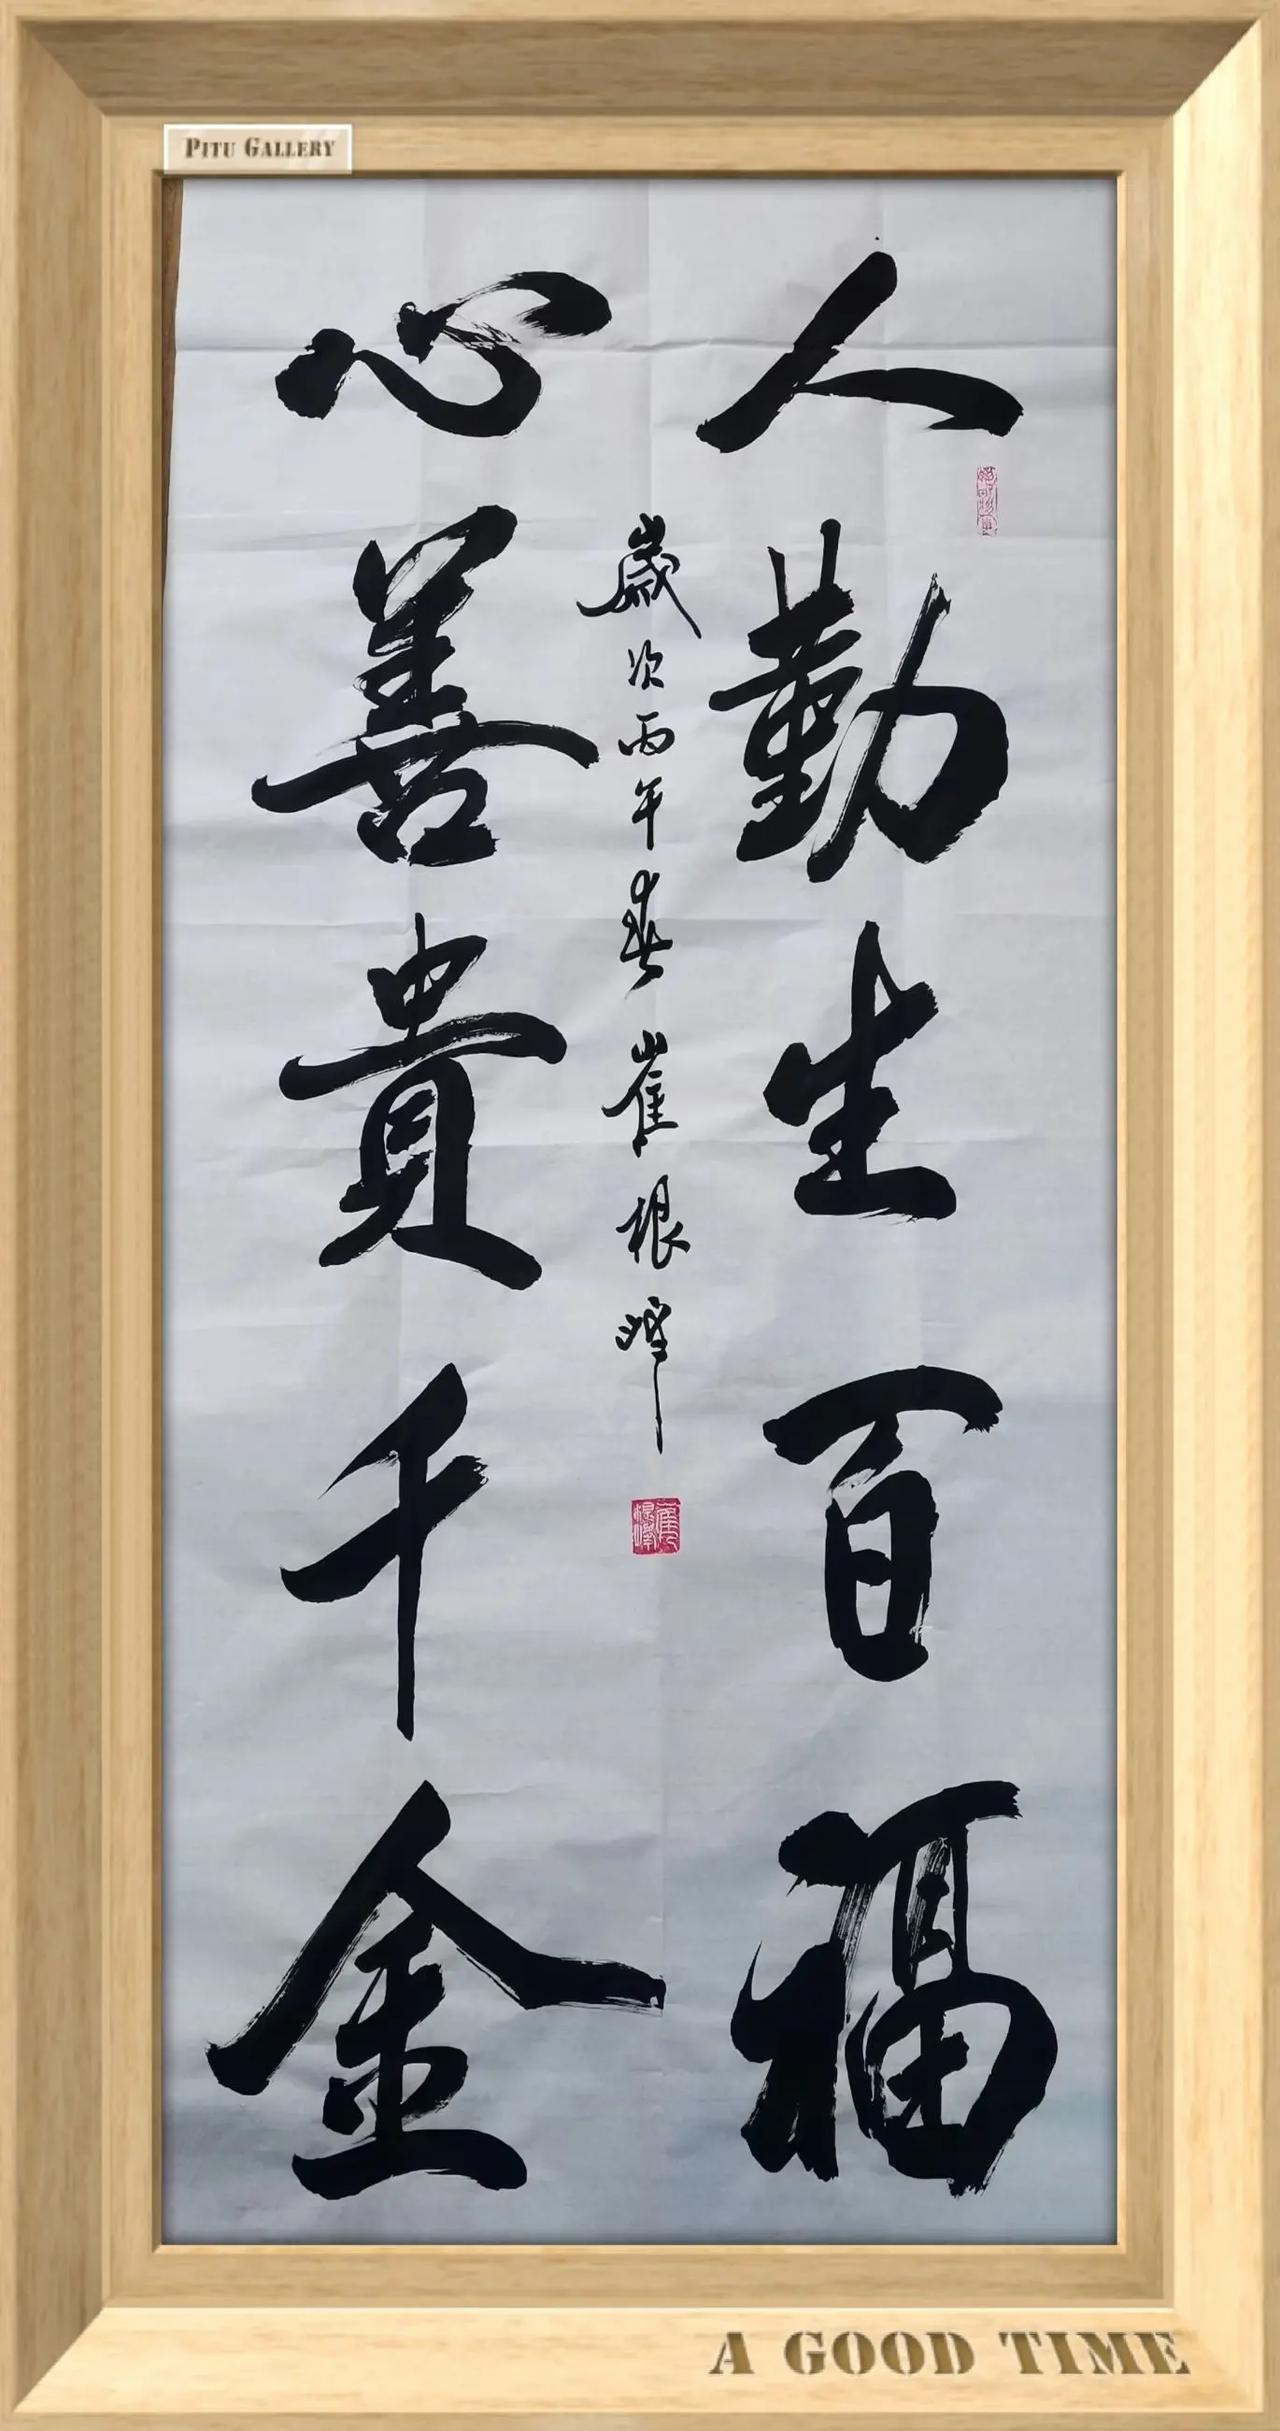 PITU GALLERY
人勤生百福
心善貴千金
歲次丙午春 崔根峰
崔根峰
A GOOD TIME